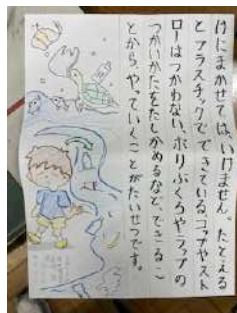 けにまかせては、いけません。たとえる
とプラスチックでできているコップやスト
ローはつかわない、ポリぶくろやラップの
つかいかたをたしかめるなど、できるこ
とから、やっていくことがたいせつです。